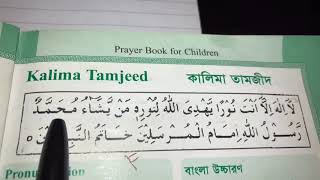 Prayer Book for Children
Kalima Tamjeed কালিমা তামজীদ
لَا إِلٰهَ إِلَّا أَنْتَ نُورًا يَّهْدِى اللّٰهُ لِنُورِهٖ مَنْ يَّشَاءُ مُحَمَّدٌ
رَّسُولُ اللّٰهِ إِمَامُ الْمُرْسَلِيْنَ خَاتَمُ النَّبِيِّيْنَ
Pronunciation বাংলা উচ্চারণ